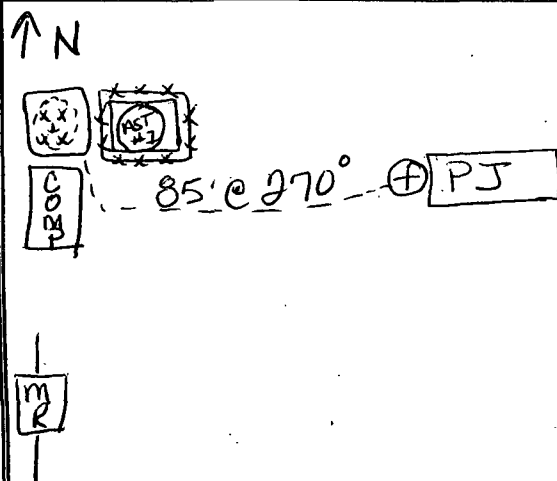 N
AST
#1
COMP
85' @ 270°
PJ
MR